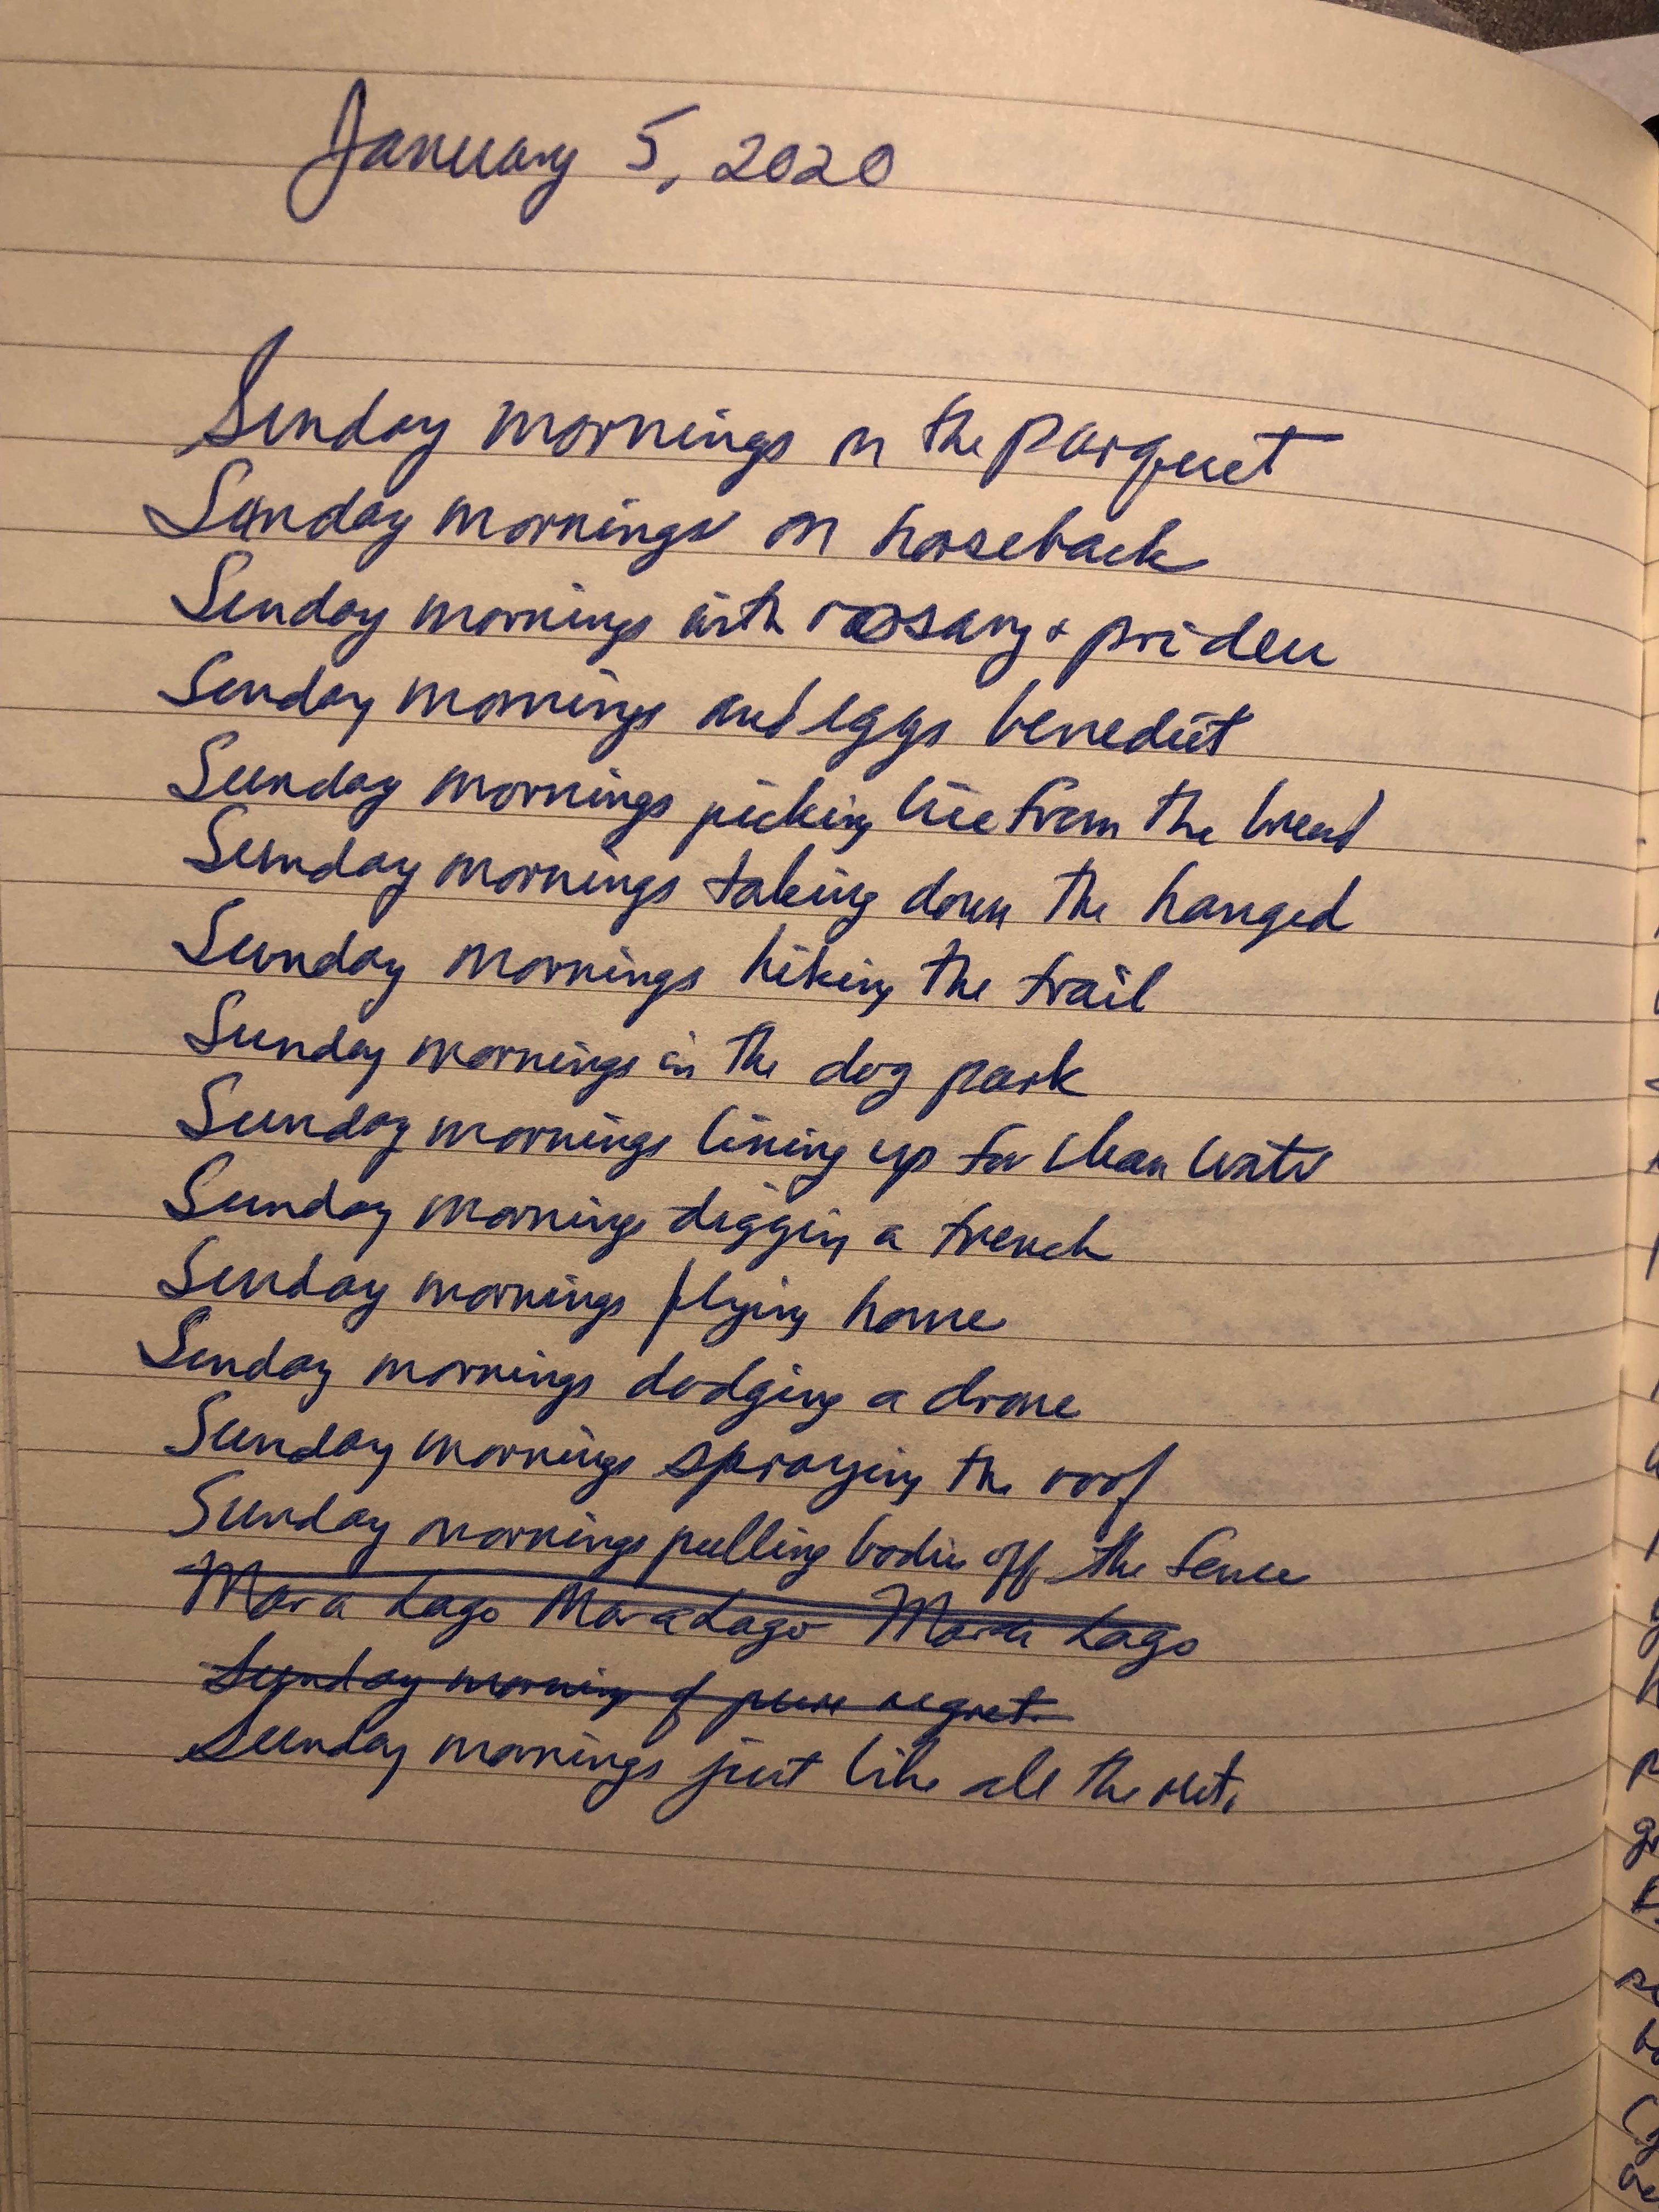 January 5, 2020
Sunday mornings on the parquet
Sunday mornings on horseback
Sunday mornings with rosary +
Sunday mornings and eggs benedict
Sunday mornings picking lice from the bread
Sunday mornings taking down the hanged
Sunday mornings hiking the trail
Sunday mornings in the dog park
Sunday mornings lining up for clean water
Sunday mornings digging a trench
Sunday mornings flying home
Sunday mornings dodging a drone
Sunday mornings spraying the roof
Sunday mornings pulling bodies off the fence
Mara Lago Mara Lago Mara Lago
Sunday morning of pure regret.
Sunday mornings just like all the rest.